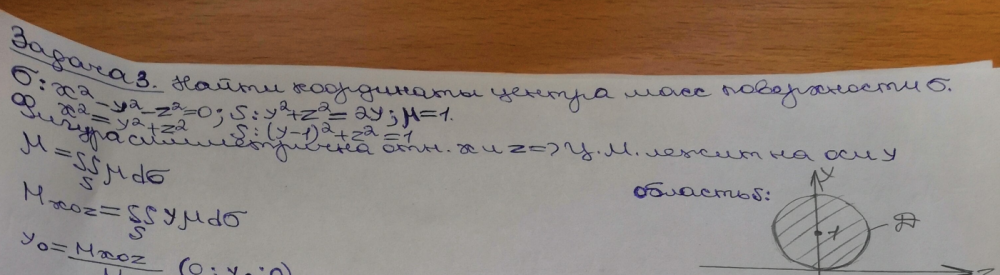 Задача 3. Найти координаты центра масс поверхности б.
б: x²-y²-z²=0; S: y²+z²=2y; μ=1.
x²=y²+z² S: (y-1)²+z²=1
Фигура симметрична отн. x и z => ц.м. лежит на оси y
M = ∬ μdб
S
Mxoz = ∬ yμdб
S
область б:
y
1
D
y₀ = Mxoz